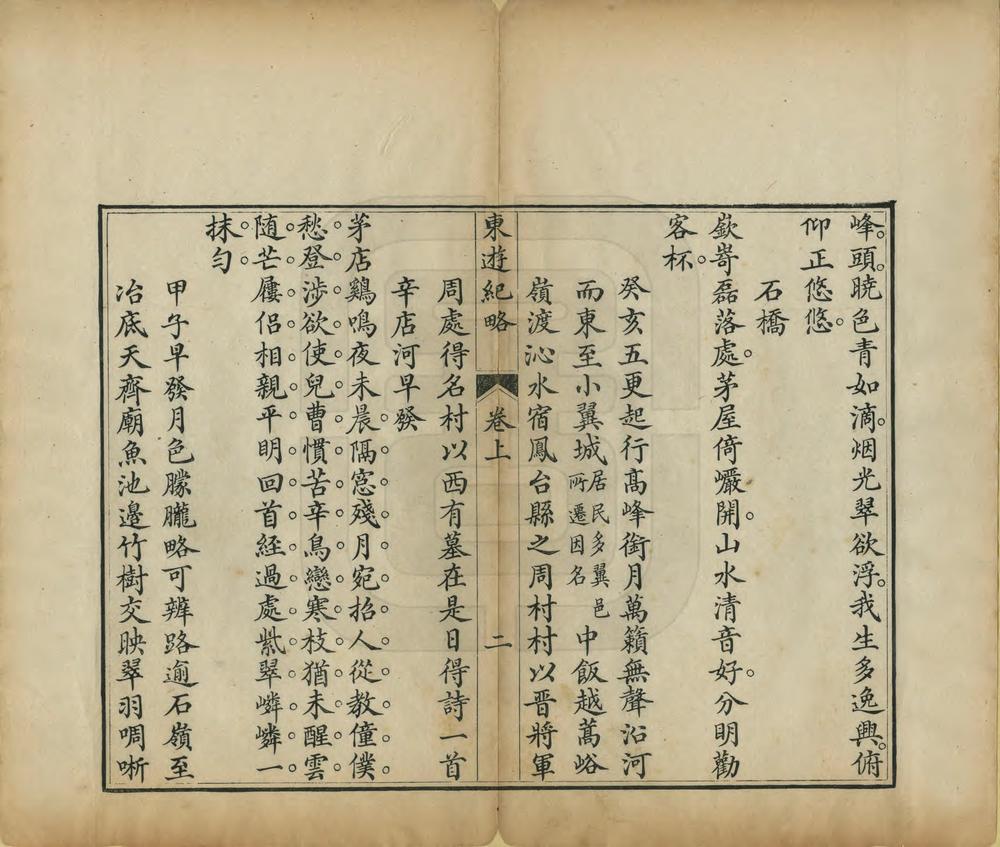 峰頭曉色青如滴烟光翠欲浮我生多逸興俯
仰正悠悠
石橋
嶔嵜磊落處茅屋倚巖開山水清音好分明勸
客杯
癸亥五更起行高峰銜月萬籟無聲沿河
而東至小翼城居民多翼邑所遷因名中飯越蒿峪
嶺渡沁水宿鳳台縣之周村村以晉將軍
東遊紀略 卷上 二
周處得名村以西有墓在是日得詩一首
辛店河早發
茅店鷄鳴夜未晨隔窓殘月宛招人從教僮僕
愁登涉欲使兒曹慣苦辛鳥戀寒枝猶未醒雲
随芒屨侶相親平明回首経過處紫翠嶙嶙一
抹勻
甲子早發月色朦朧略可辨路逾石嶺至
冶底天齊廟魚池邊竹樹交映翠羽啁哳